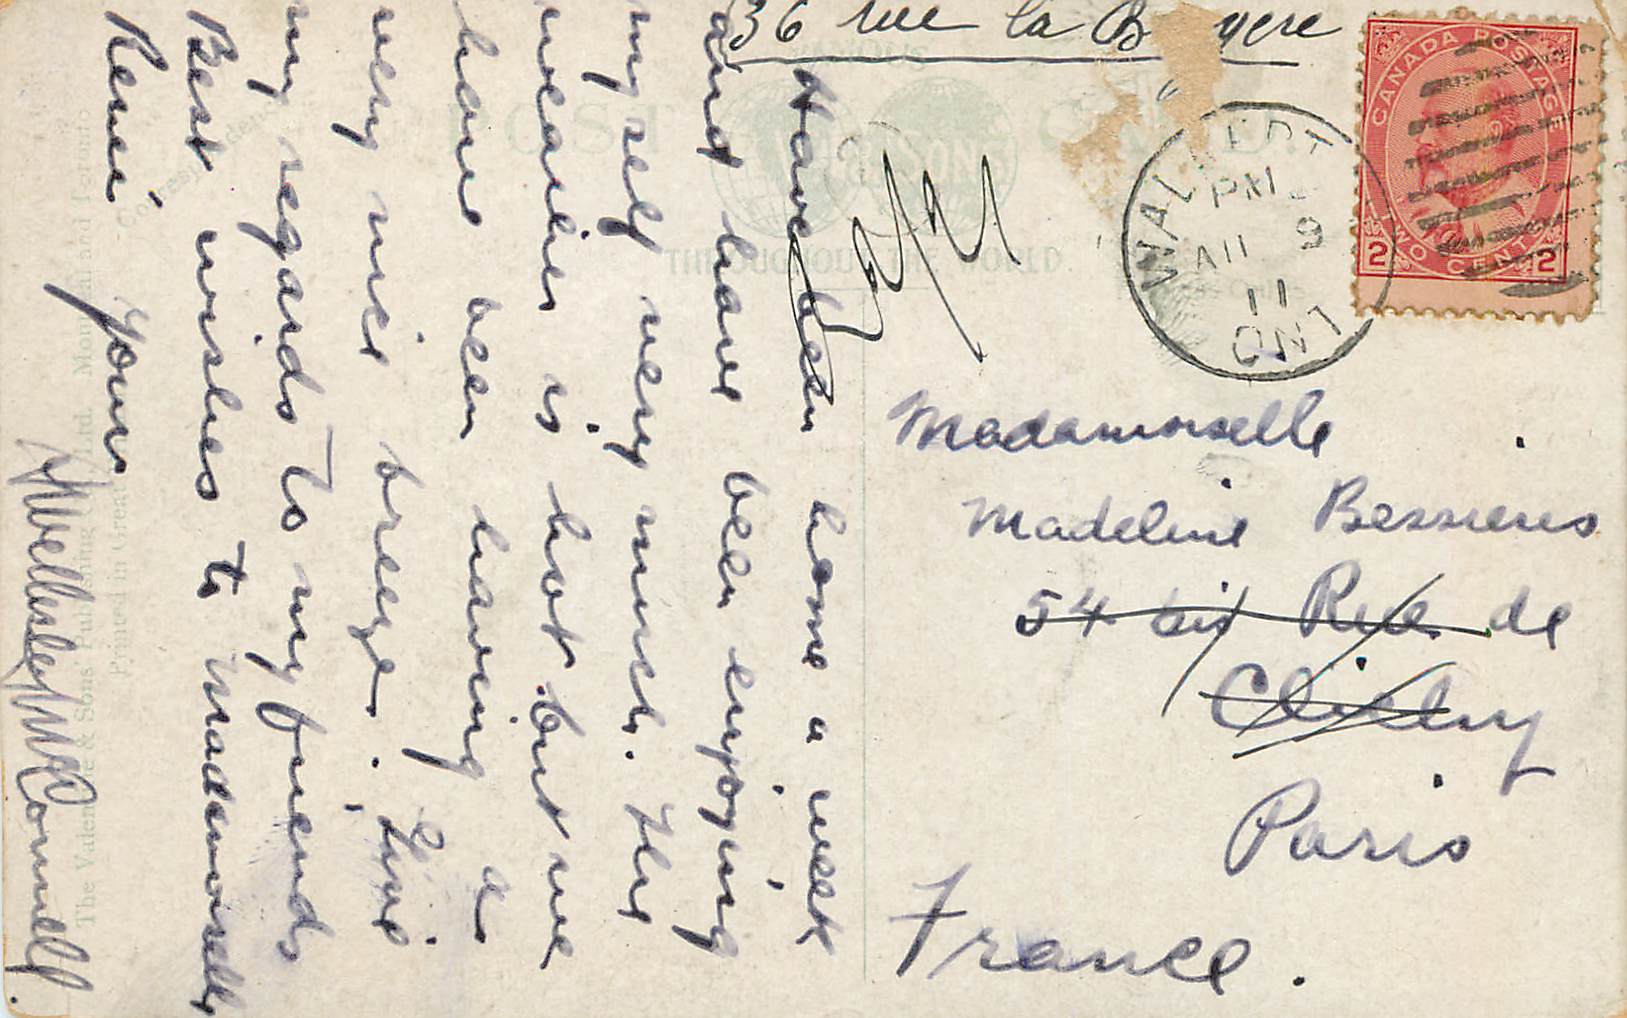 36 rue la Bruyere
Have been home a week
and have been enjoying
my self very much. The
weather is hot but we
have been having a
very nice breeze. Give
my regards to my friends
Best wishes to Mademoiselle
Reni Yours
Wellesley McConnell.
POST
& SONS
THROUGHOUT THE WORLD
The Valentine & Sons' Publishing Co. Ltd. Montreal and Toronto
Printed in Great
Correspondence
PM
AU 9
11
ONT
CANADA POSTAGE
2 TWO CENTS 2
Madamoiselle
Madeline Bessieres
54 bis Rue de
Clichy
Paris
France.